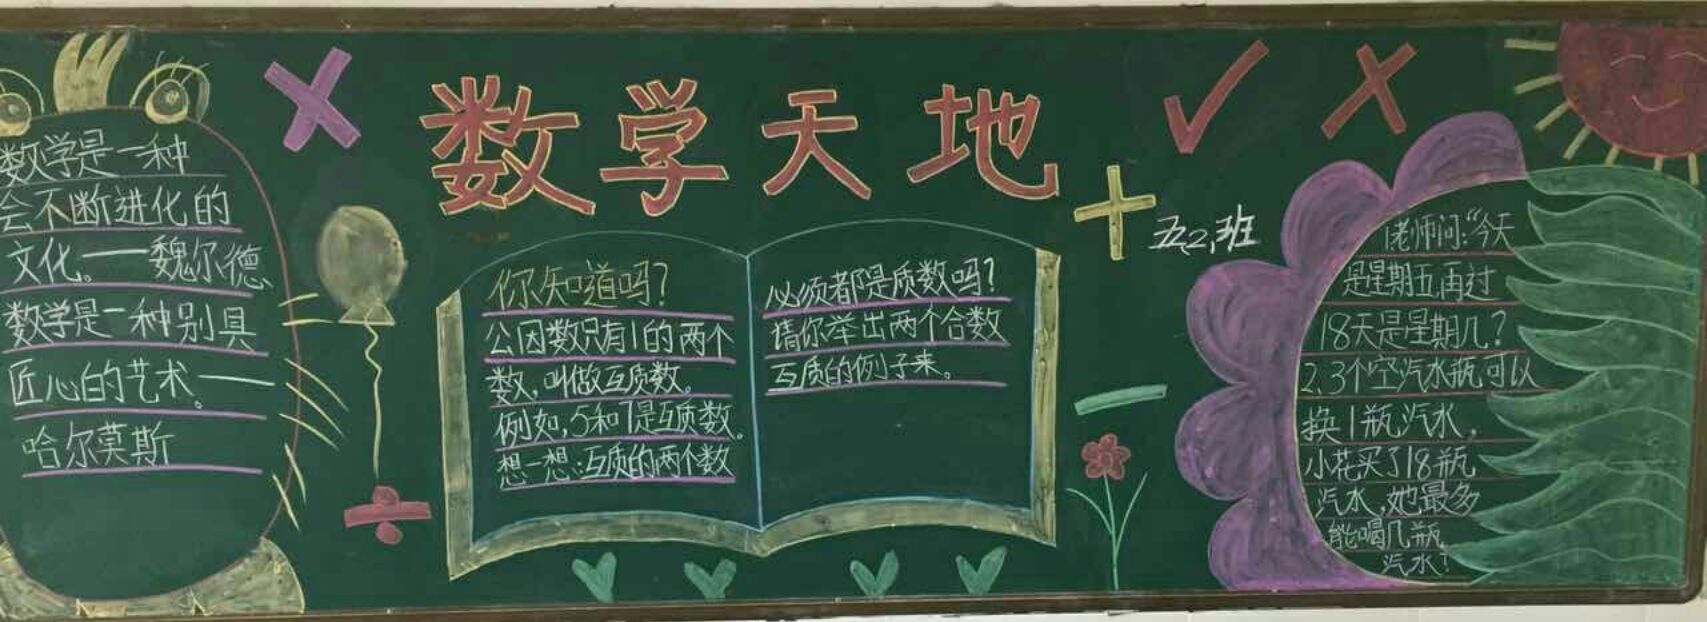 数学天地
五、2、班
数学是一种
会不断进化的
文化。——魏尔德
数学是一种别具
匠心的艺术。——
哈尔莫斯
你知道吗?
公因数只有1的两个
数,叫做互质数。
例如,5和7是互质数。
想一想:互质的两个数
必须都是质数吗?
请你举出两个合数
互质的例子来。
1老师问:“今天
是星期五再过
18天是星期几?
2、3个空汽水瓶可以
换1瓶汽水,
小花买了18瓶
汽水,她最多
能喝几瓶
汽水?